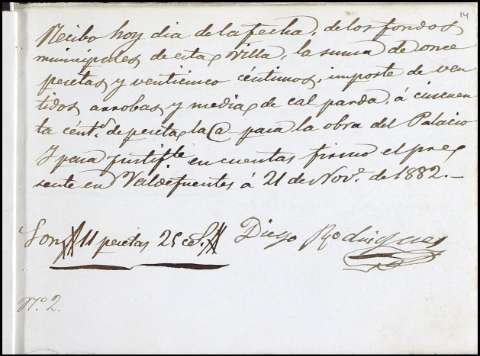 14
Recibo hoy dia de la fecha, de los fondos
municipales de esta Villa, la suma de once
pesetas y venticinco centimos, importe de ven
tidos arrobas y media de cal parda, á cincuen
ta cént.s de peseta la @ para la obra del Palacio
Y para justif.te en cuentas firmo el pre
sente en Valdefuentes á 21 de Nov.e de 1882.—
Son 11 pesetas 25 cs.
Diego Rodriguez
N.o 2.